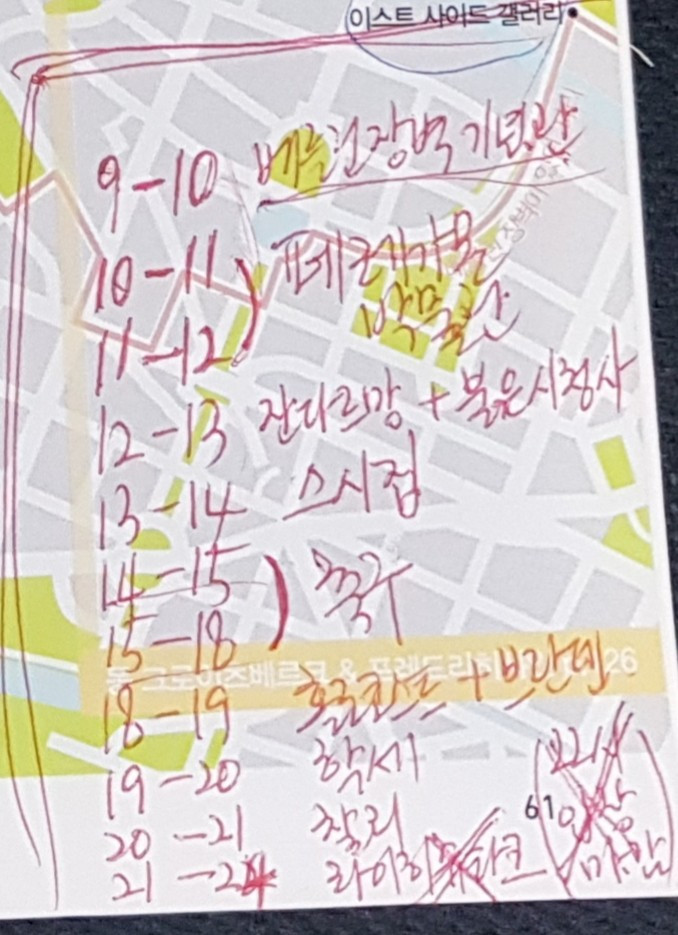 이스트 사이드 갤러리
9-10 베를린장벽 기념관
10-11
11-12
페르가몬
박물관
12-13 잔다르망 + 붉은시청사
13-14 스시집
14-15
15-18
축구
크로이츠베르크 & 프레드리히
26
18-19 홀로코스트 + 브란덴
19-20 학세
20-21 찰리
21-24
61